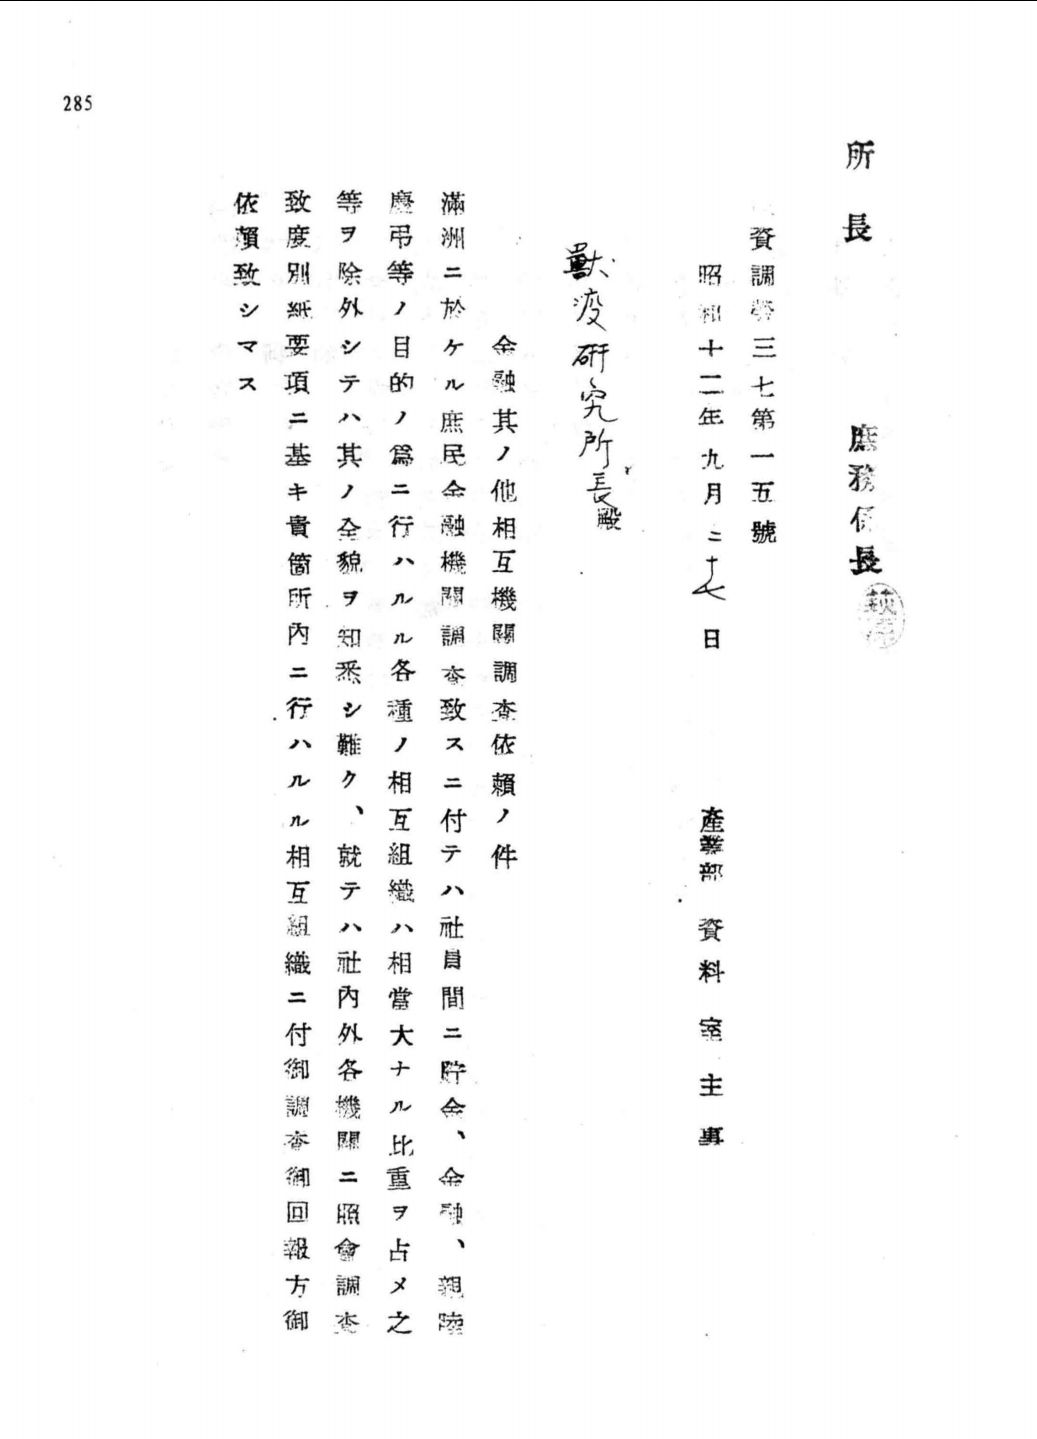 285
所長 庶務係長
資調勞三七第一五號
昭和十二年九月二十七日 產業部 資料室主事
獸疫研究所長殿
金融其ノ他相互機關調查依賴ノ件
滿洲ニ於ケル庶民金融機關調查致スニ付テハ社員間ニ貯金、金融、親睦
慶弔等ノ目的ノ爲ニ行ハルル各種ノ相互組織ハ相當大ナル比重ヲ占メ之
等ヲ除外シテハ其ノ全貌ヲ知悉シ難ク、就テハ社內外各機關ニ照會調查
致度別紙要項ニ基キ貴箇所內ニ行ハルル相互組織ニ付御調查御回報方御
依賴致シマス